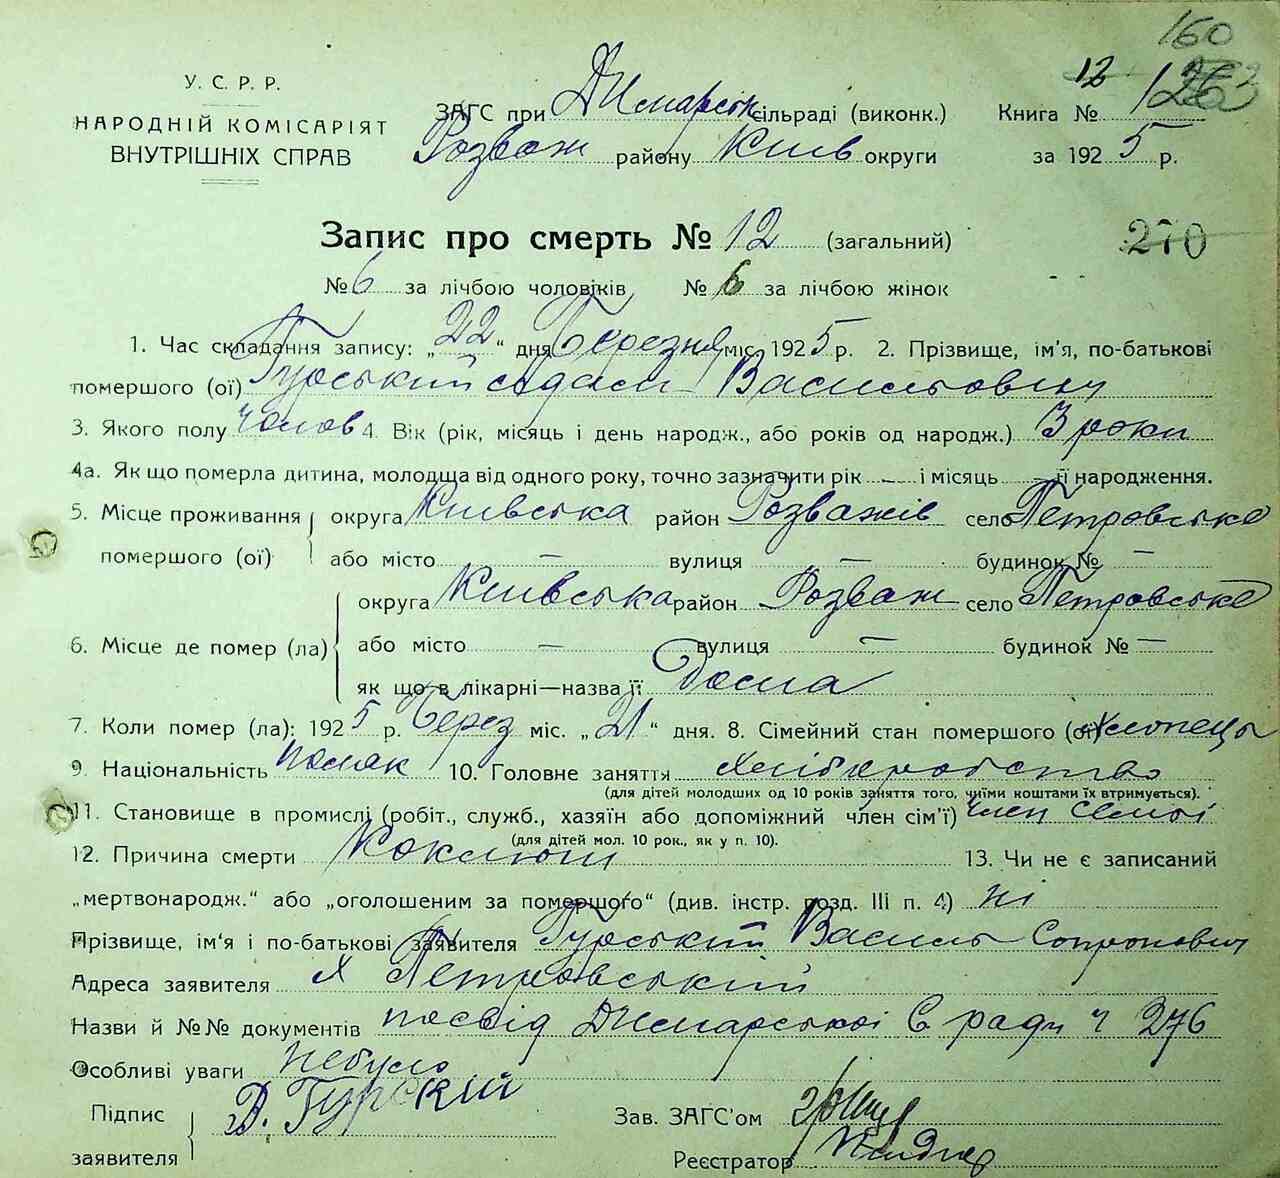 160
У. С. Р. Р.
НАРОДНІЙ КОМІСАРІЯТ
ВНУТРІШНІХ СПРАВ
ЗАГС при Димарськ сільраді (виконк.) Книга № 12
Розваж району Київ округи за 1925 р.
Запис про смерть № 12 (загальний) 270
№ 6 за лічбою чоловіків № 6 за лічбою жінок
1. Час складання запису: „22“ дня Березня міс. 1925 р. 2. Прізвище, ім'я, по-батькові
помершого (ої) Гурський Адам Васильович
3. Якого полу чолов 4. Вік (рік, місяць і день народж., або років од народж.) 3 роки
4а. Як що померла дитина, молодща від одного року, точно зазначити рік — і місяць — її народження.
5. Місце проживання округа Київська район Розважів село Петровське
помершого (ої) або місто — вулиця — будинок № —
округа Київська район Розваж село Петровське
6. Місце де помер (ла) або місто — вулиця — будинок № —
як що в лікарні—назва її Дома
7. Коли помер (ла): 1925 р. Берез міс. „21“ дня. 8. Сімейний стан помершого (ої) хлопець
9. Національність поляк 10. Головне заняття хліборобство
(для дітей молодших од 10 років заняття того, чиїми коштами їх втримується).
11. Становище в промислі (робіт., служб., хазяїн або допоміжний член сім'ї) член семьї
(для дітей мол. 10 рок., як у п. 10).
12. Причина смерти Коклюш 13. Чи не є записаний
„мертвонародж.“ або „оголошеним за помершого“ (див. інстр. розд. III п. 4) ні
Прізвище, ім'я і по-батькові заявителя Гурський Василь Сопронович
Адреса заявителя х Петровський
Назви й №№ документів посвід Димарської С ради ч 276
Особливі уваги небуло
Підпис В. Гурский Зав. ЗАГС'ом
заявителя Реєстратор